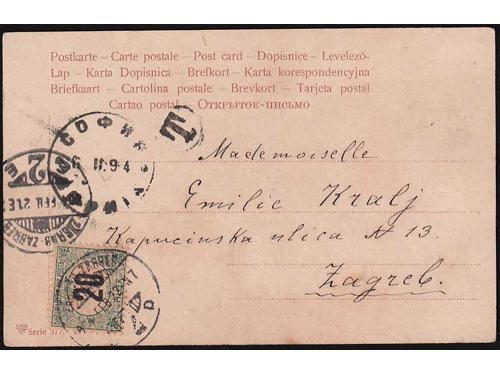 Postkarte – Carte postale – Post card – Dopisnice – Levelező-
Lap – Karta Dopisnica – Brefkort – Karta korespondencyjna
Briefkaart – Cartolina postale – Brevkort – Tarjeta postál
Cartao postal – ОТКРЫТОЕ-ПИСЬМО
T
СОФИЯ
Mademoiselle
Emilie Kralj
Kapucinska ulica № 13.
Zagreb.
20
D
Serie